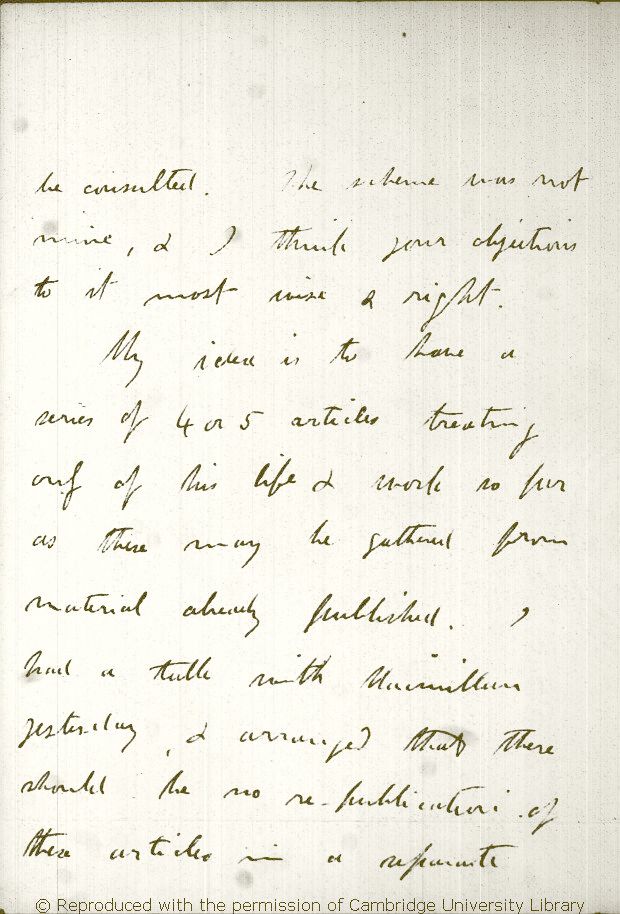 be consulted. The scheme was not
mine, & I think your objections
to it most wise & right.
My idea is to have a
series of 4 or 5 articles treating
only of his life & work so far
as these may be gathered from
material already published. I
had a talk with Macmillan
yesterday, & arranged that there
should be no re-publication of
these articles in a separate
© Reproduced with the permission of Cambridge University Library